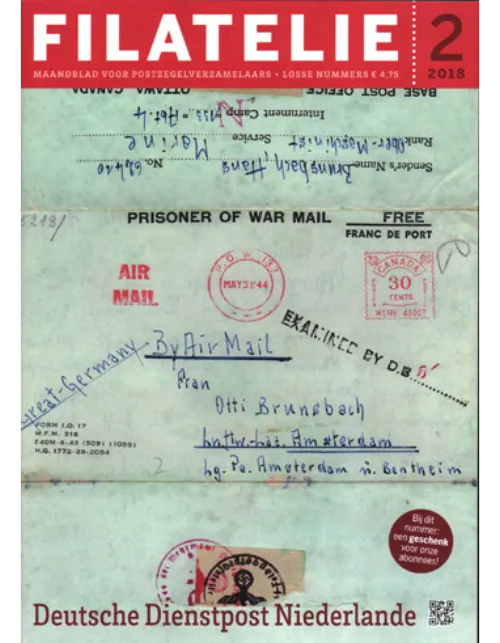 FILATELIE
2
2018
MAANDBLAD VOOR POSTZEGELVERZAMELAARS • LOSSE NUMMERS € 4,75
BASE POST OFFICE OTTAWA CANADA
Internment Camp "133" Abt. 4
Rank Ober-Maschinist Service Marine
Sender's Name Brunsbach Hans No.
PRISONER OF WAR MAIL FREE
FRANC DE PORT
AIR
MAIL
P.O.W. 133
MAY 31 44
CANADA
30
CENTS
EXAMINED BY D.B
Great-Germany
By Air Mail
Frau
Otti Brunsbach
Amsterdam
Lg. Pa. Amsterdam ü. Bentheim
FORM I.O. 17
M.F.M. 316
H.Q. 1772-39-2054
2
Bij dit
nummer:
een geschenk
voor onze
abonnees!
Deutsche Dienstpost Niederlande